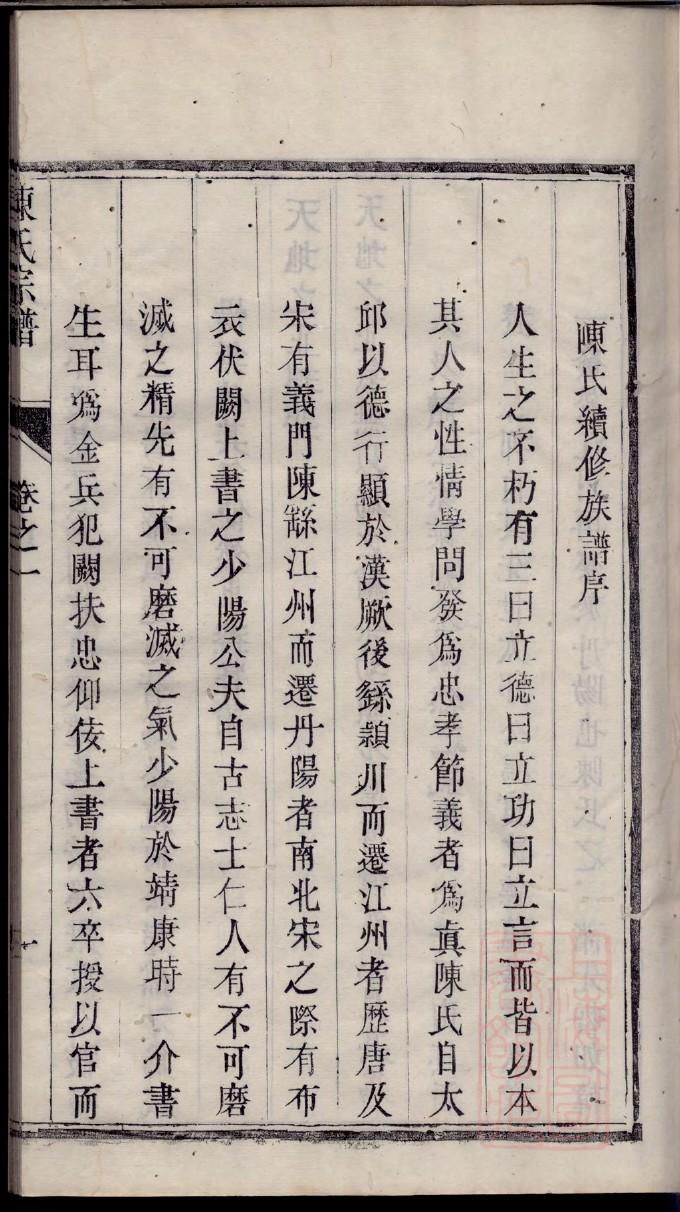 陳氏續修族譜序
人生之不朽有三曰立德曰立功曰立言而皆以本
其人之性情學問發爲忠孝節義者爲真陳氏自太
邱以德行顯於漢厥後繇潁川而遷江州者歷唐及
宋有義門陳繇江州而遷丹陽者南北宋之際有布
衣伏闕上書之少陽公夫自古志士仁人有不可磨
滅之精先有不可磨滅之氣少陽於靖康時一介書
生耳爲金兵犯闕扶忠仰俊上書者六卒授以官而
陳氏宗譜
卷之一